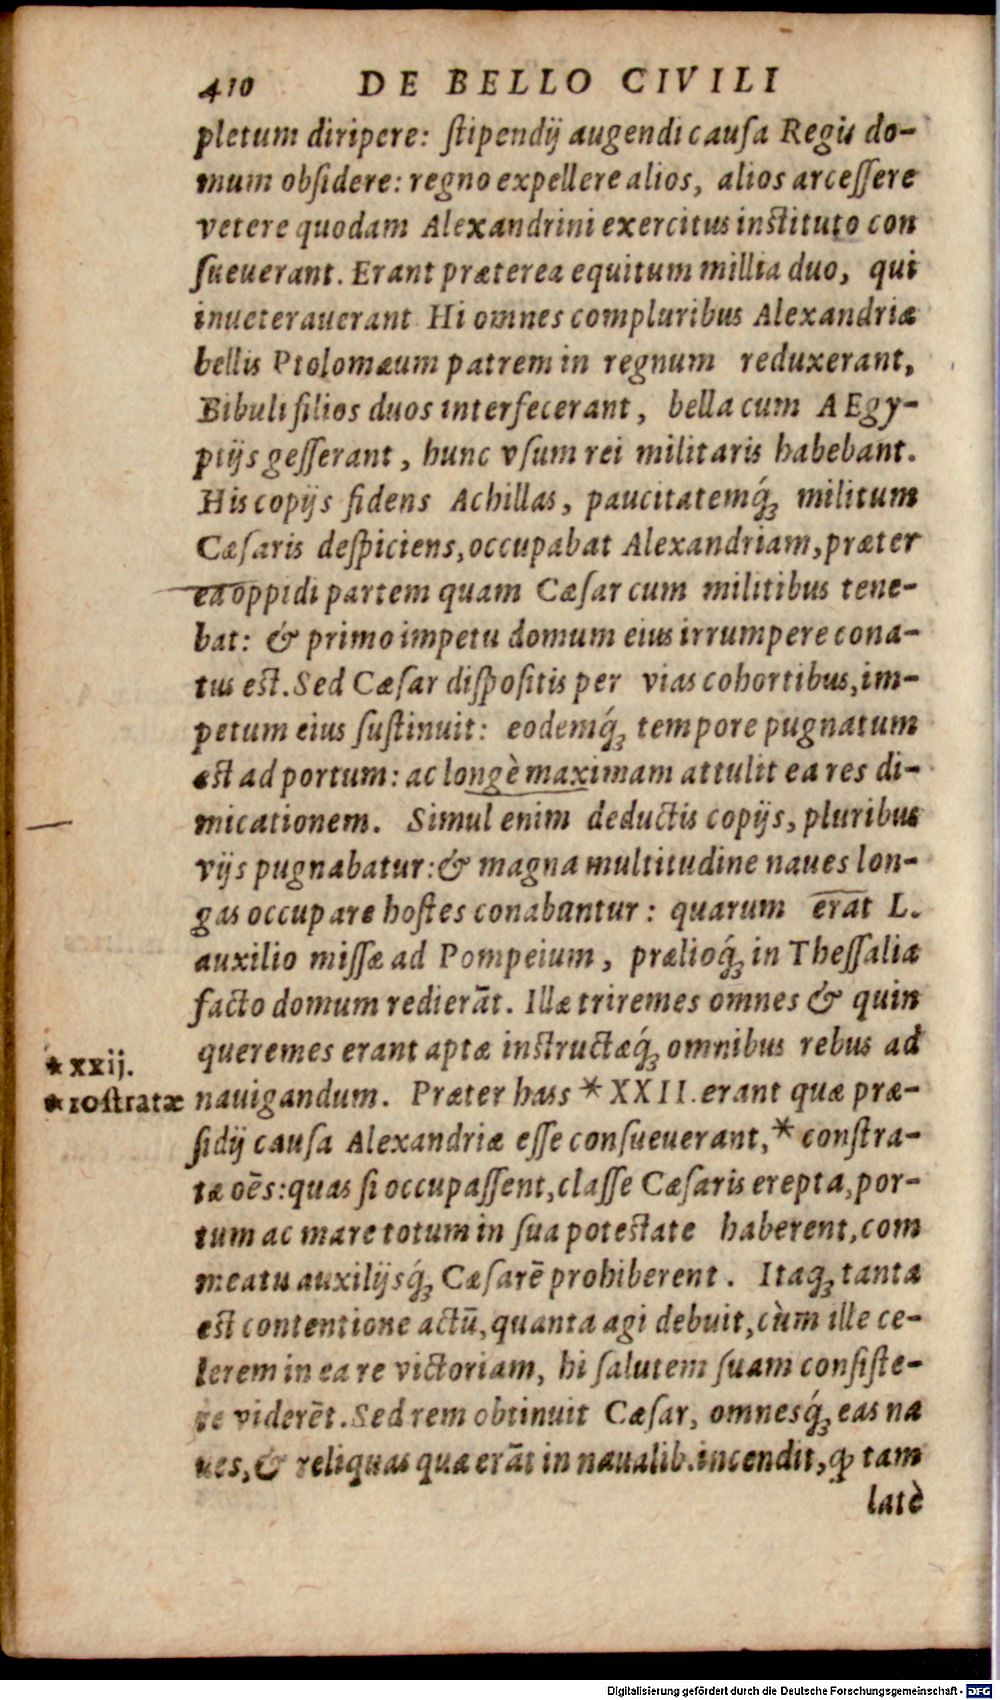 410 DE BELLO CIVILI
pletum diripere: ſtipendij augendi cauſa Regis do-
mum obſidere: regno expellere alios, alios arceſſere
vetere quodam Alexandrini exercitus inſtituto con
ſueuerant. Erant præterea equitum millia duo, qui
inueterauerant Hi omnes compluribus Alexandriæ
bellis Ptolomæum patrem in regnum reduxerant,
Bibuli filios duos interfecerant, bella cum AEgy-
ptijs geſſerant, hunc vſum rei militaris habebant.
His copijs fidens Achillas, paucitatemq́ꝫ militum
Cæſaris deſpiciens, occupabat Alexandriam, præter
ea oppidi partem quam Cæſar cum militibus tene-
bat: & primo impetu domum eius irrumpere cona-
tus eſt. Sed Cæſar diſpoſitis per vias cohortibus, im-
petum eius ſuſtinuit: eodemq́ꝫ tempore pugnatum
eſt ad portum: ac longè maximam attulit ea res di-
micationem. Simul enim deductis copijs, pluribus
vijs pugnabatur: & magna multitudine naues lon-
gas occupare hoſtes conabantur: quarum erat L.
auxilio miſſæ ad Pompeium, prælioq́ꝫ in Theſſalia
facto domum redierāt. Illæ triremes omnes & quin
queremes erant aptæ inſtructæq́ꝫ omnibus rebus ad
* xxij.
* roſtratæ
nauigandum. Præter has * XXII. erant quæ præ-
ſidij cauſa Alexandriæ eſſe conſueuerant, * conſtra-
tæ oēs: quas ſi occupaſſent, claſſe Cæſaris erepta, por-
tum ac mare totum in ſua poteſtate haberent, com
meatu auxilijsq́ꝫ Cæſarē prohiberent. Itaqꝫ tanta
eſt contentione actū, quanta agi debuit, cùm ille ce-
lerem in ea re victoriam, hi ſalutem ſuam conſiſte-
re viderēt. Sed rem obtinuit Cæſar, omnesq́ꝫ eas na
ues, & reliquas quæ erāt in naualib. incendit, ꝙ tam
latè
Digitalisierung gefördert durch die Deutsche Forschungsgemeinschaft - DFG